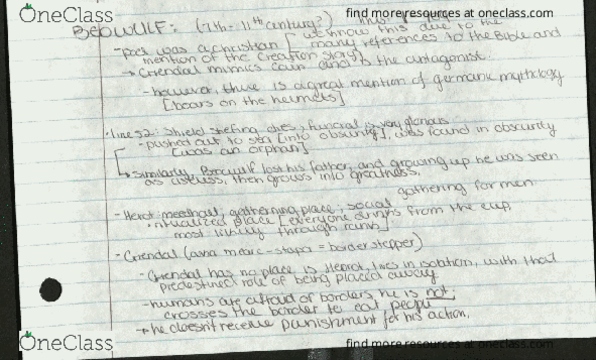 OneClass
find more resources at oneclass.com
BEOWULF: (7th - 11th century?)
- poet was a christian [we know this due to the
many references to the Bible and
mention of the creation story]
→ Grendal mimics cain and is the antagonist.
- however, there is a great mention of germanic mythology
[boars on the helmets]
• line 52: Shield Shefing dies, funeral is very glorious
- pushed out to sea [into obscurity], was found in obscurity
[was an orphan]
→ similarly, Beowulf lost his father, and growing up he was seen
as useless, then grows into greatness.
- Herot: meadhall; gathering place; social gathering for men
• ritualized place [everyone drinks from the cup,
most likely through runes]
- Grendal (asna mearc-stapa = border stepper)
- Grendal has no place is Heorot, lives in isolation, with that
predestined role of being placed away.
- humans are afraid of borders, he is not;
crosses the border to eat people
→ he doesn't receive punishment for his action,
OneClass
find more resources at oneclass.com